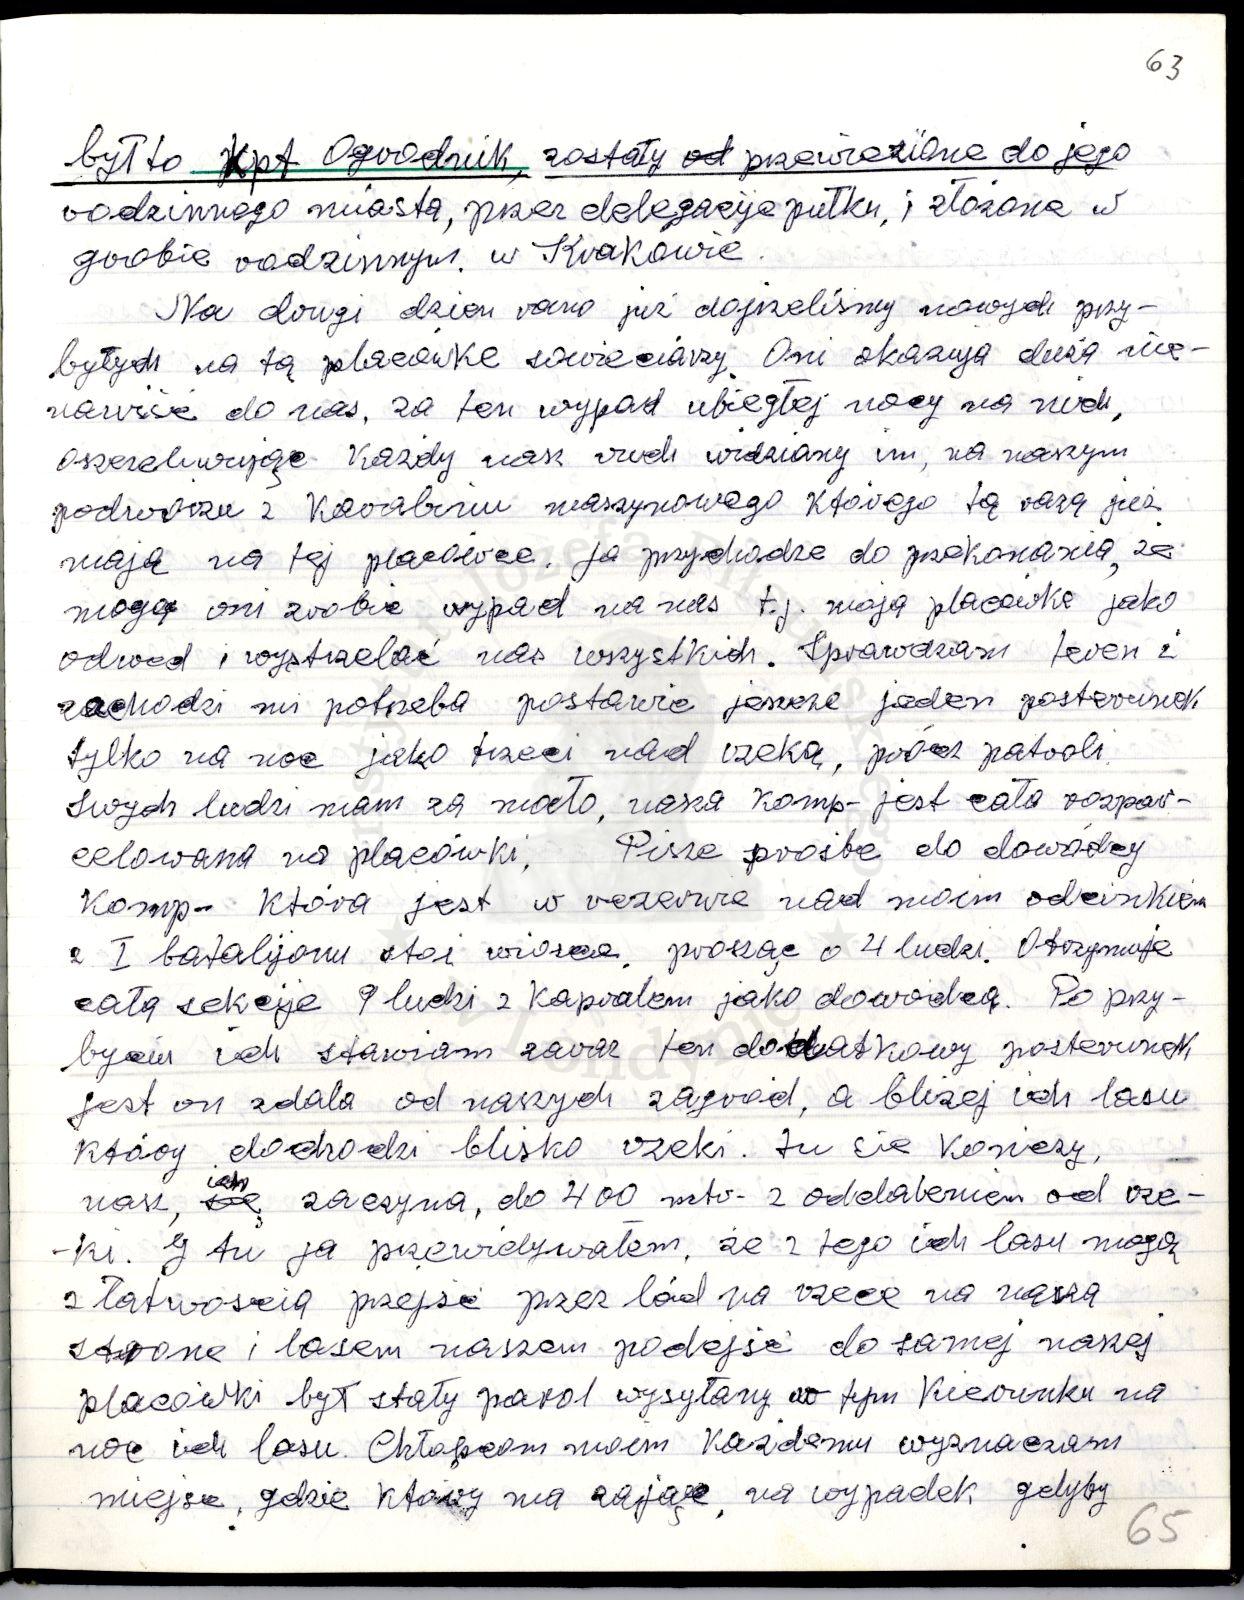 63
był to kpt Ogrodnik, zostały od przewieziöne do jego
rodzinnego miasta, przez delegacije pułku, i złożone w
grobie rodzinnym. w Krakowie.
Na drugi dzien rano już dojrzeliśmy nowych przy-
byłych na tą placówkę sowieciarzy. Oni okazują dużą nie-
nawiść do nas, za ten wypad ubiegłej nocy na nich,
oszczeliwując każdy nasz ruch widziany im, na naszym
podwórzu z karabinu maszynowego którego tą razą już
mają na tej placówce. Ja przychodze do przekonania, że
mogą oni zrobić wypad na nas t.j. moją placówkę jako
odwed i wystrzelać nas wszystkich. Sprawdzam teren i
zachodzi mi potrzeba postawić jeszcze jeden posterunek
tylko na noc jako trzeci nad rzeką, prócz patroli.
Swych ludzi mam za mało, nasza komp- jest cała rozpar-
celowana na placówki. Pisze prośbe do dowódcy
Komp- która jest w rezerwie nad moim odcinkiem
z I batalijonu stoi wiosce, prosząc o 4 ludzi. Otrzymuje
całą sekcije 9 ludzi z kapralem jako dowodcą. Po przy-
byciu ich stawiam zaraz ten dodatkowy posterunek
jest on zdala od naszych zagród, a bliżej ich lasu
który dochodzi blisko rzeki. tu sie kończy,
nasz, ich zaczyna, do 400 mtr- z oddaleniem od rze-
-ki. I tu ja przewidywałem, że z tego ich lasu mogą
z łatwoscią przejsć przez lód na rzece na naszą
strone i lasem naszem podejsć do samej naszej
placówki był stały parol wysyłany w tym kierunku na
noc ich lasu. Chłopcom moim każdemu wyznaczam
miejsc, gdzie który ma zająć, na wypadek gdyby
65